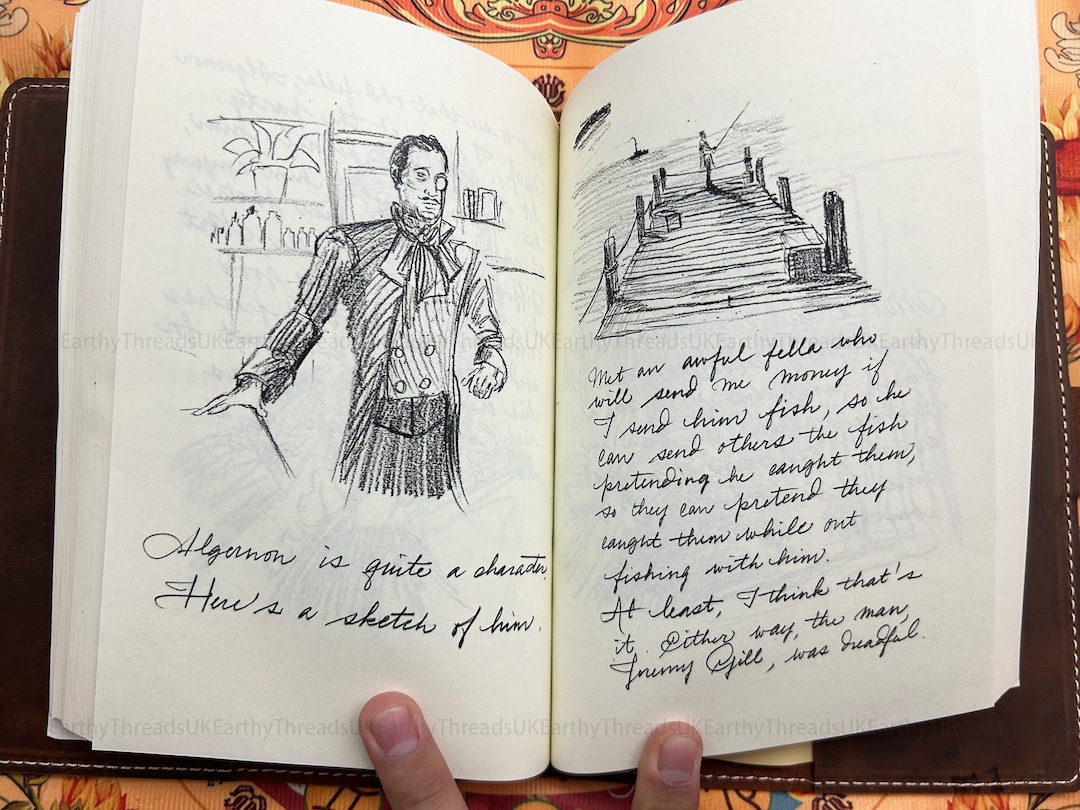 Algernon is quite a character.
Here's a sketch of him.
Met an awful fella who
will send me money if
I send him fish, so he
can send others the fish
pretending he caught them,
so they can pretend they
caught them while out
fishing with him.
At least, I think that's
it. Either way, the man,
Jeremy Gill, was dreadful.
EarthyThreadsUKEarthyThreadsUKEarthyThreadsUKEarthyThreadsUKEarthyThreadsUKEarthyThreadsUK
EarthyThreadsUKEarthyThreadsUKEarthyThreadsUKEarthyThreadsUKEarthyThreadsUKEarthyThreadsUK